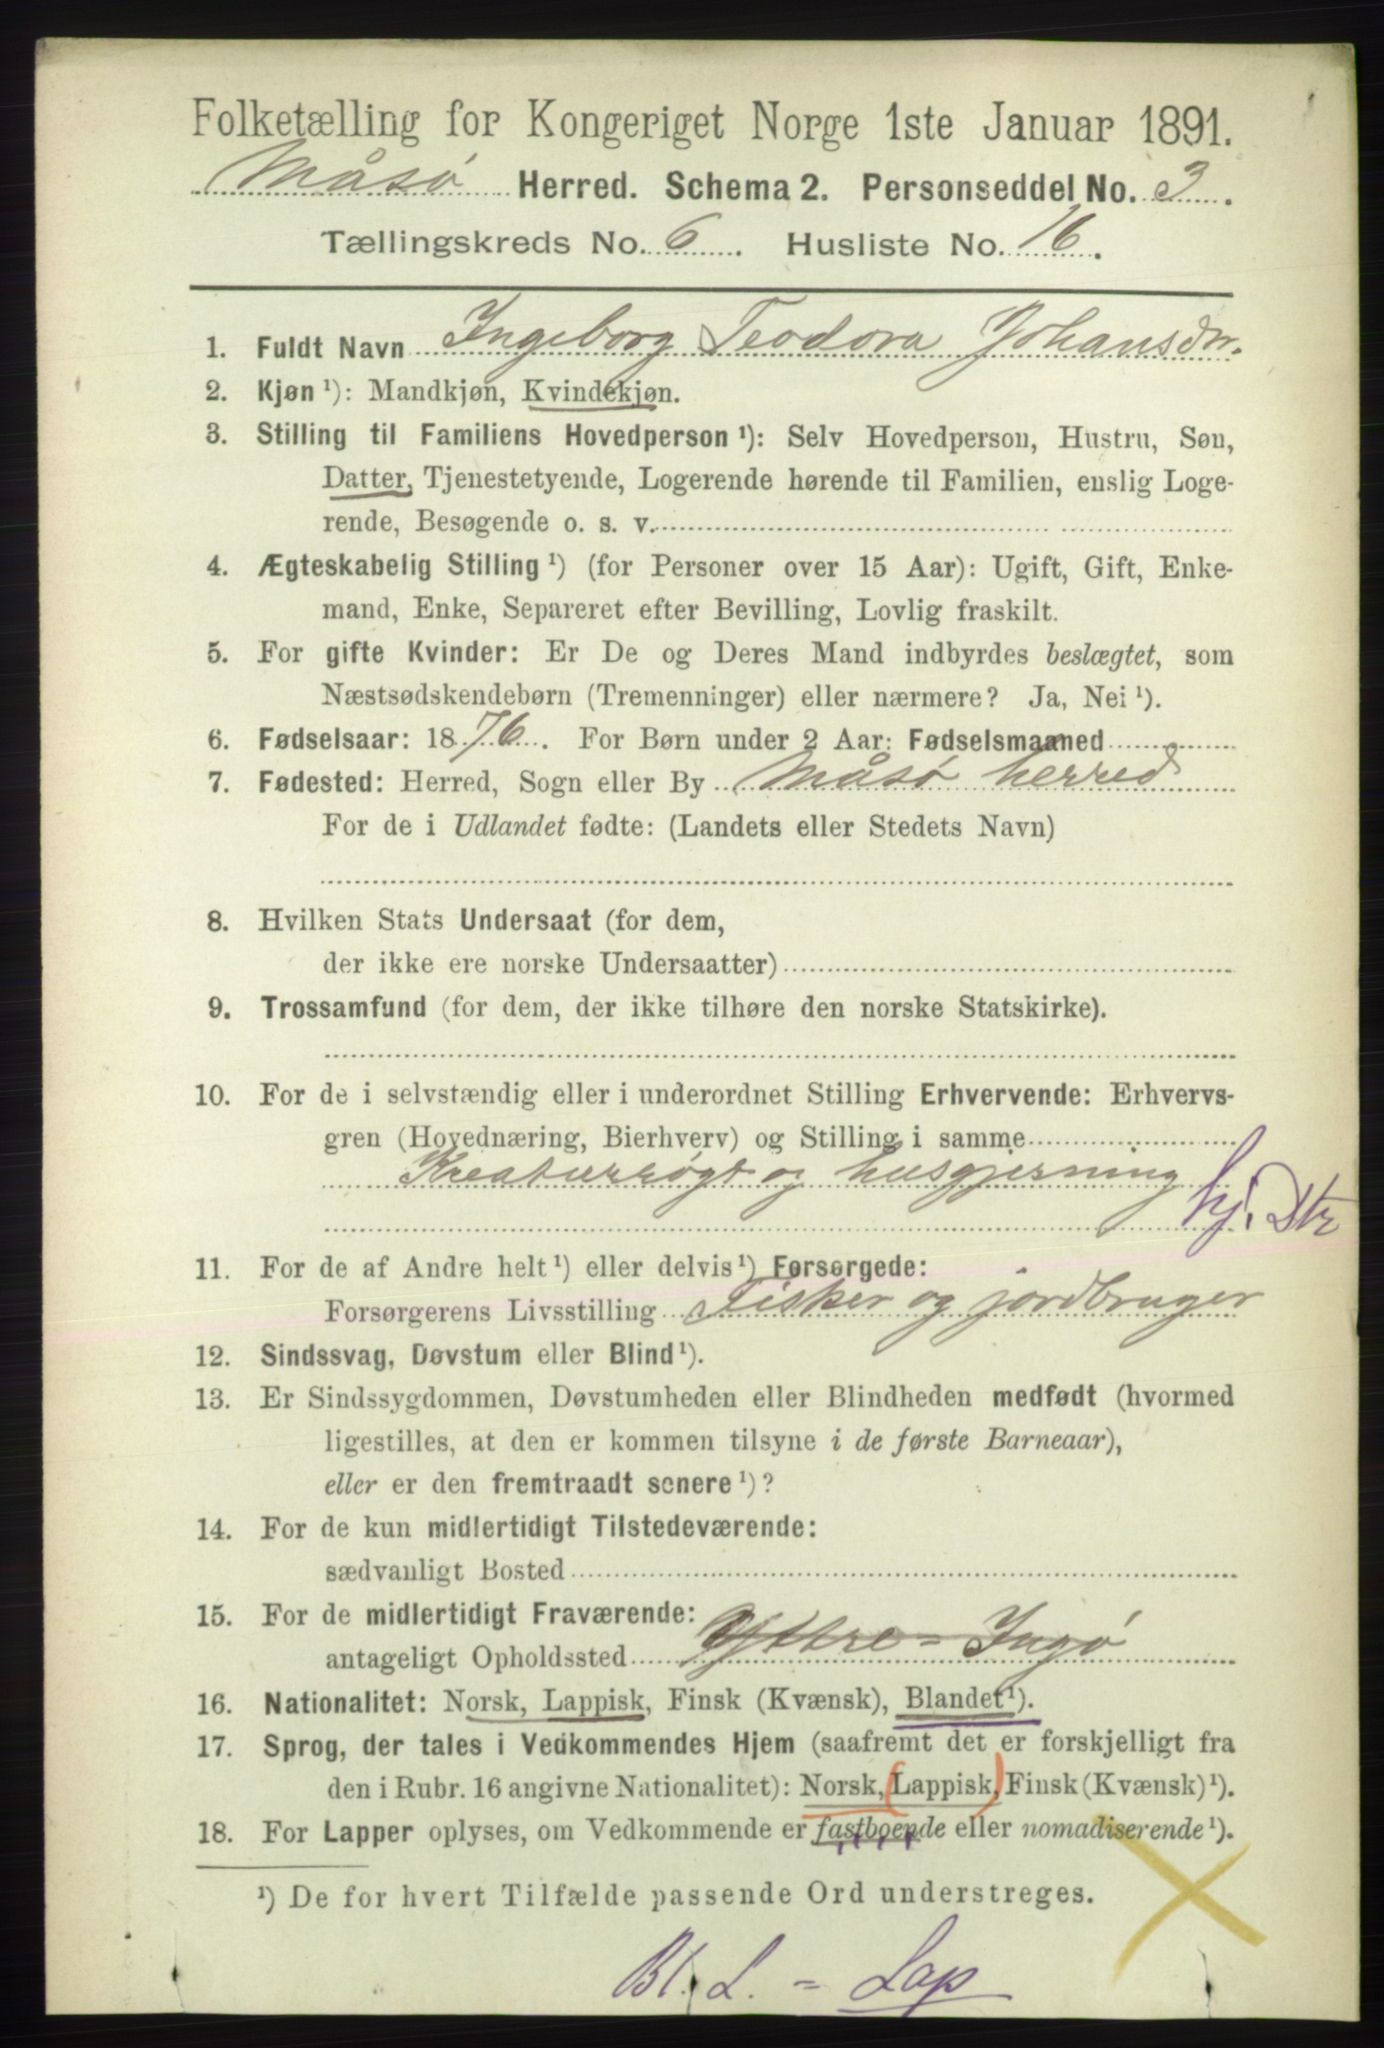 Folketælling for Kongeriget Norge 1ste Januar 1891.
Måsø Herred. Schema 2. Personseddel No. 3.
Tællingskreds No. 6. Husliste No. 16.
1. Fuldt Navn Ingeborg Teodora Johansdr.
2. Kjøn ¹): Mandkjøn, Kvindekjøn.
3. Stilling til Familiens Hovedperson ¹): Selv Hovedperson, Hustru, Søn,
Datter, Tjenestetyende, Logerende hørende til Familien, enslig Loge-
rende, Besøgende o. s. v.
4. Ægteskabelig Stilling ¹) (for Personer over 15 Aar): Ugift, Gift, Enke-
mand, Enke, Separeret efter Bevilling, Lovlig fraskilt.
5. For gifte Kvinder: Er De og Deres Mand indbyrdes beslægtet, som
Næstsødskendebørn (Tremenninger) eller nærmere? Ja, Nei ¹).
6. Fødselsaar: 1876. For Børn under 2 Aar: Fødselsmaaned
7. Fødested: Herred, Sogn eller By Måsø herred
For de i Udlandet fødte: (Landets eller Stedets Navn)
8. Hvilken Stats Undersaat (for dem,
der ikke ere norske Undersaatter)
9. Trossamfund (for dem, der ikke tilhøre den norske Statskirke).
10. For de i selvstændig eller i underordnet Stilling Erhvervende: Erhvervs-
gren (Hovednæring, Bierhverv) og Stilling i samme
Kreaturrøgt og husgjerning
hj. Dtr
11. For de af Andre helt ¹) eller delvis ¹) Forsørgede:
Forsørgerens Livsstilling Fisker og jordbruger
12. Sindssvag, Døvstum eller Blind ¹).
13. Er Sindssygdommen, Døvstumheden eller Blindheden medfødt (hvormed
ligestilles, at den er kommen tilsyne i de første Barneaar),
eller er den fremtraadt senere ¹)?
14. For de kun midlertidigt Tilstedeværende:
sædvanligt Bosted
15. For de midlertidigt Fraværende:
antageligt Opholdssted Yttre-Ingø
16. Nationalitet: Norsk, Lappisk, Finsk (Kvænsk), Blandet ¹).
17. Sprog, der tales i Vedkommendes Hjem (saafremt det er forskjelligt fra
den i Rubr. 16 angivne Nationalitet): Norsk, (Lappisk,) Finsk (Kvænsk) ¹).
18. For Lapper oplyses, om Vedkommende er fastboende eller nomadiserende ¹).
¹) De for hvert Tilfælde passende Ord understreges.
Bl. L. = Lap